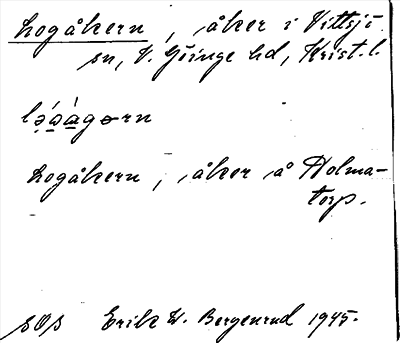 hogåkern, åker i Vittsjö
sn, V. Göinge hd, Krist. l.
hogåkern, åker å Holma-
torp.
SOS Erik W. Bergenrud 1945.